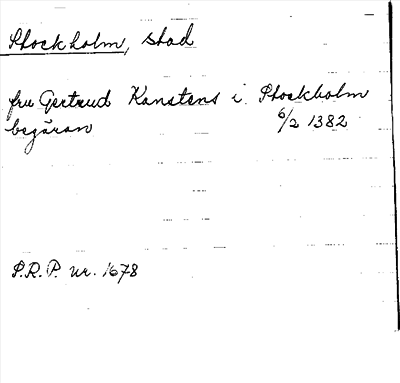 Stockholm, stad
fru Gertrud Karstens i Stockholm
begäran 6/2 1382
S.R.P. nr. 1678